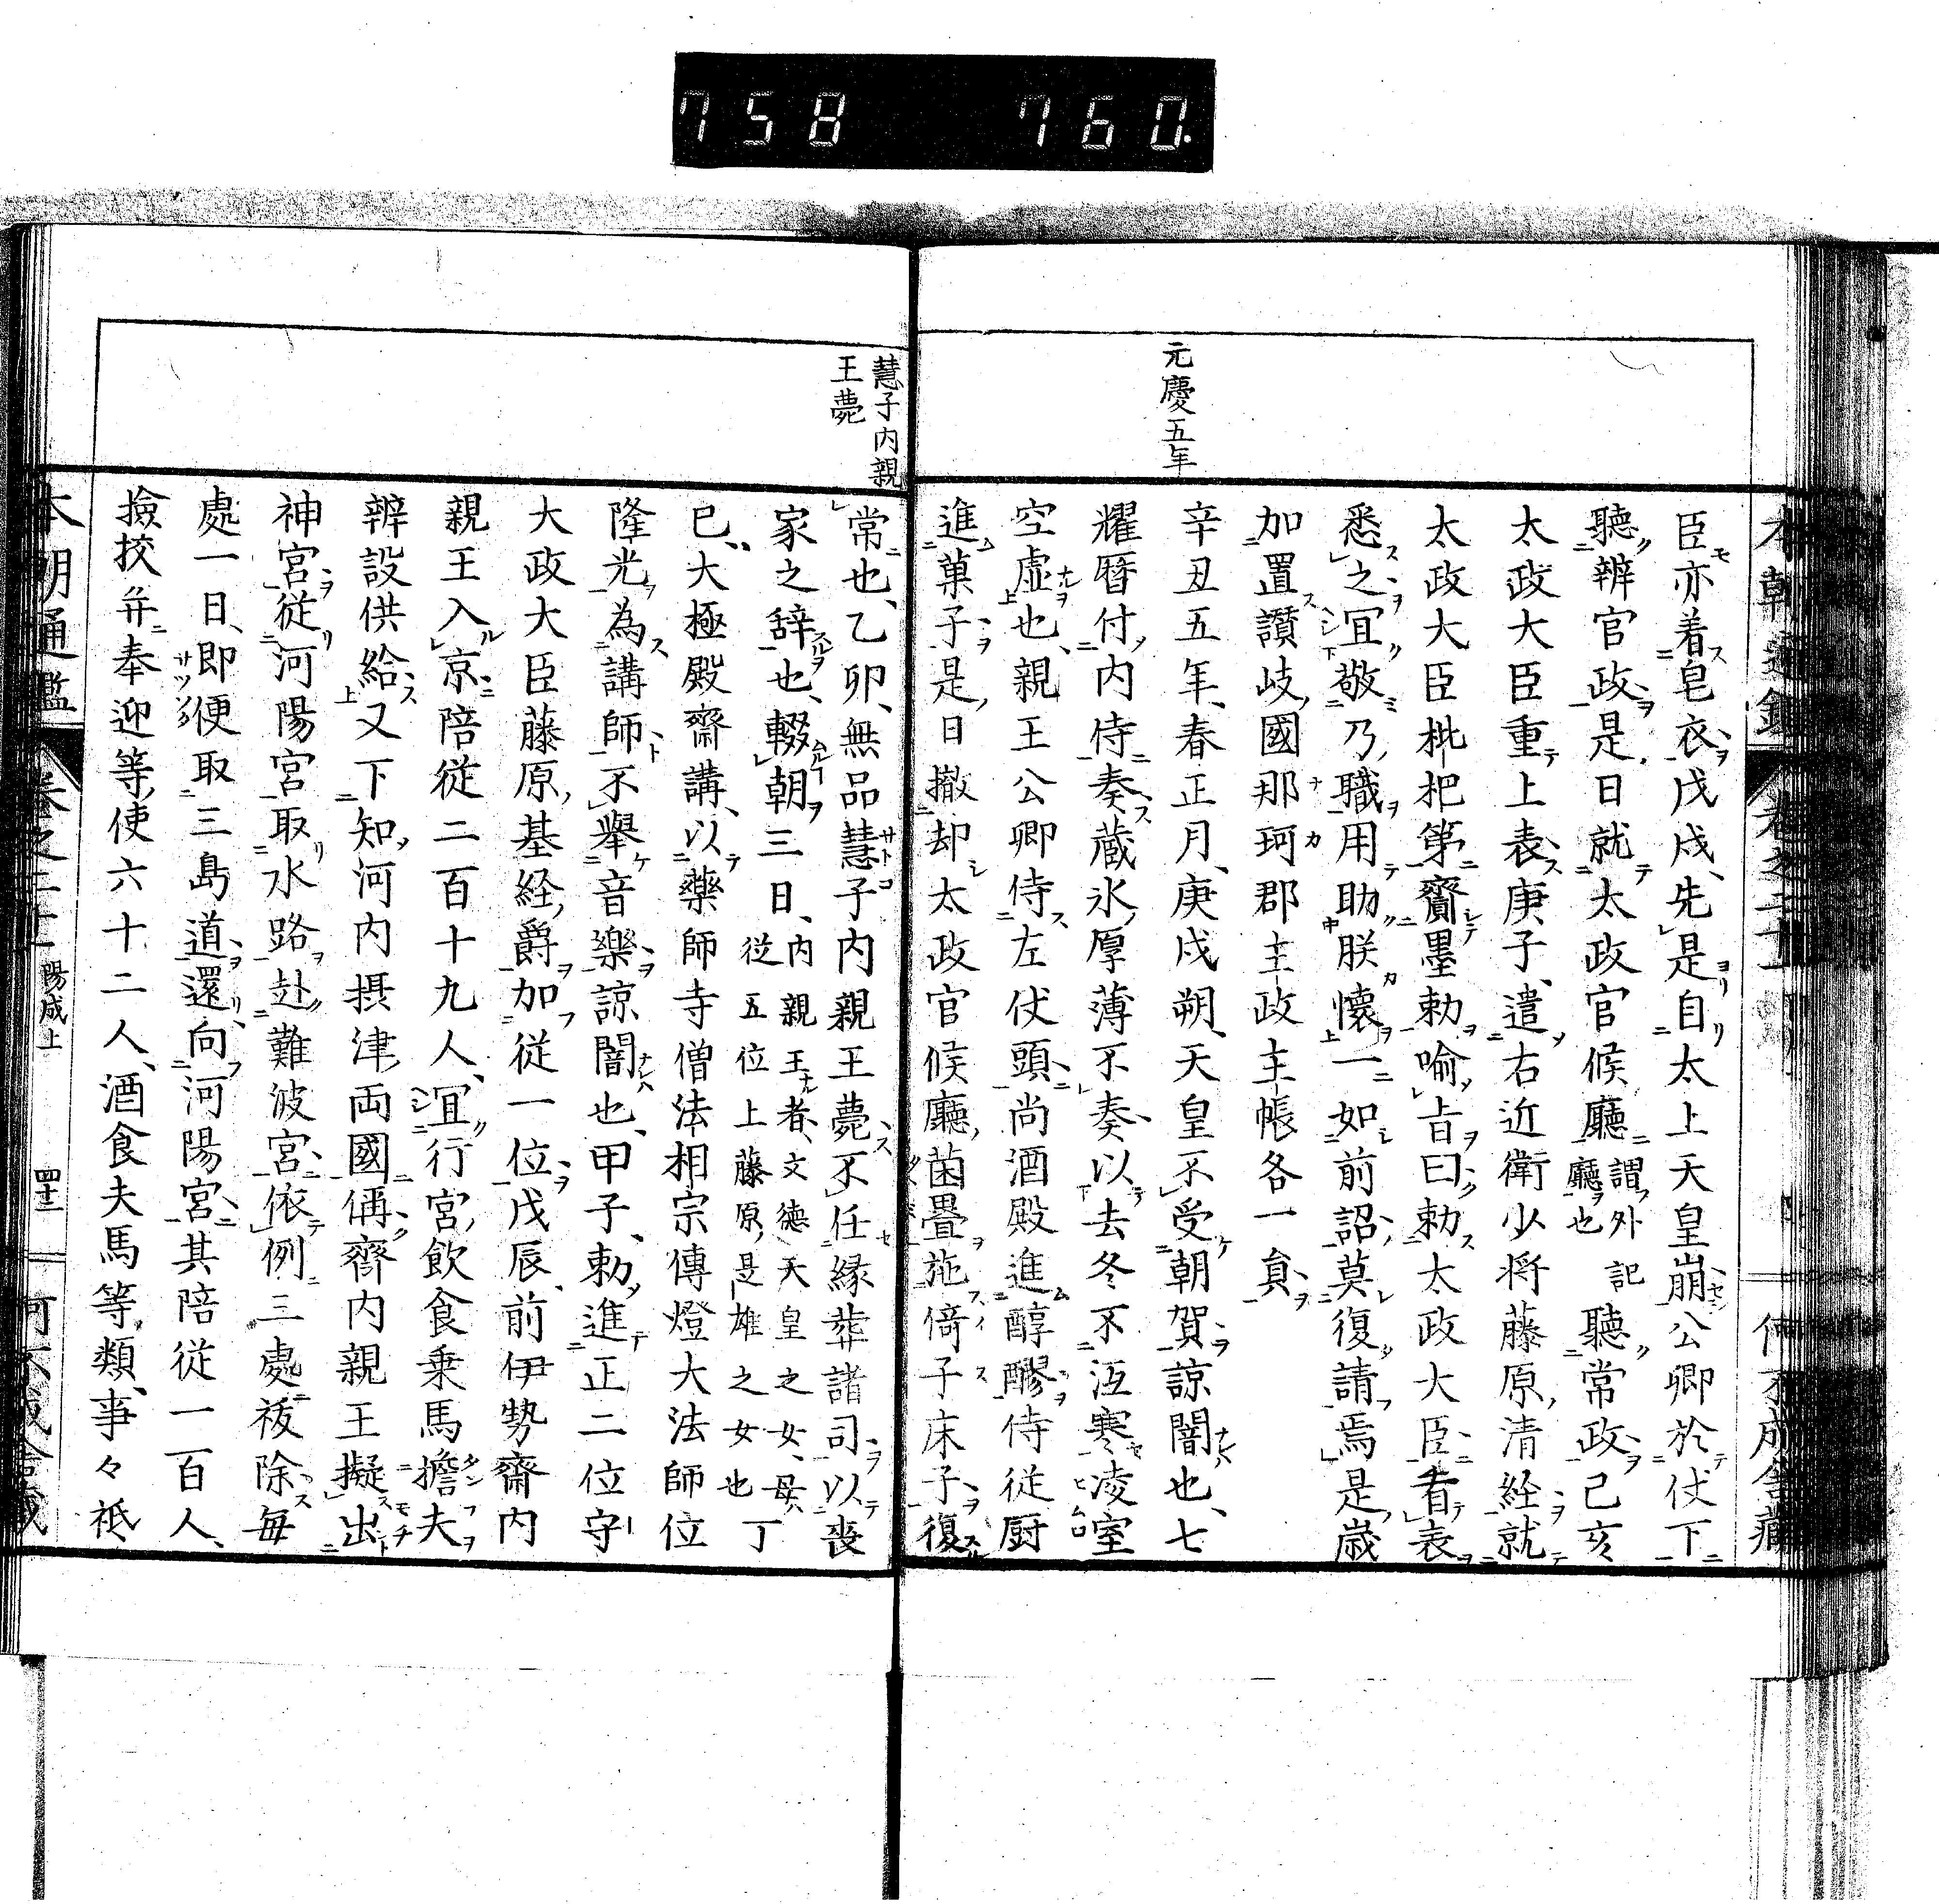 758 760.
元慶五年
臣亦着皂衣戊戌先是自太上天皇崩公卿於仗下
聽辨官政是日就太政官候廳謂外記廳也聽常政己亥
太政大臣重上表庚子遣右近衛少将藤原清経就
太政大臣枇杷第齎墨勅喻旨曰勅太政大臣看表
悉之宜敬乃職用助朕懷一如前詔莫復請焉是歳
加置讃岐國那珂郡主政主帳各一員
辛丑五年春正月庚戌朔天皇不受朝賀諒闇也七
耀暦付内侍奏蔵氷厚薄不奏以去冬不沍寒凌室
空虚也親王公卿侍左仗頭尚酒殿進醇醪侍從厨
進菓子是日撤却太政官候廳茵畳施倚子床子復
慧子内親
王薨
常也乙卯無品慧子内親王薨不任縁葬諸司以喪
家之辞也輟朝三日内親王者文德天皇之女母從五位上藤原是雄之女也丁
巳大極殿齋講以藥師寺僧法相宗傳燈大法師位
隆光為講師不舉音樂諒闇也甲子勅進正二位守
大政大臣藤原基経爵加從一位戊辰前伊勢齋内
親王入京陪從二百十九人宜行宮飲食乗馬擔夫
辨設供給又下知河内摂津両國偁齊内親王擬出
神宮從河陽宮取水路赴難波宮依例三處祓除毎
處一日即便取三島道還向河陽宮其陪從一百人
撿挍并奉迎等使六十二人酒食夫馬等類事々祗
本朝通鑑 陽成上 四十二